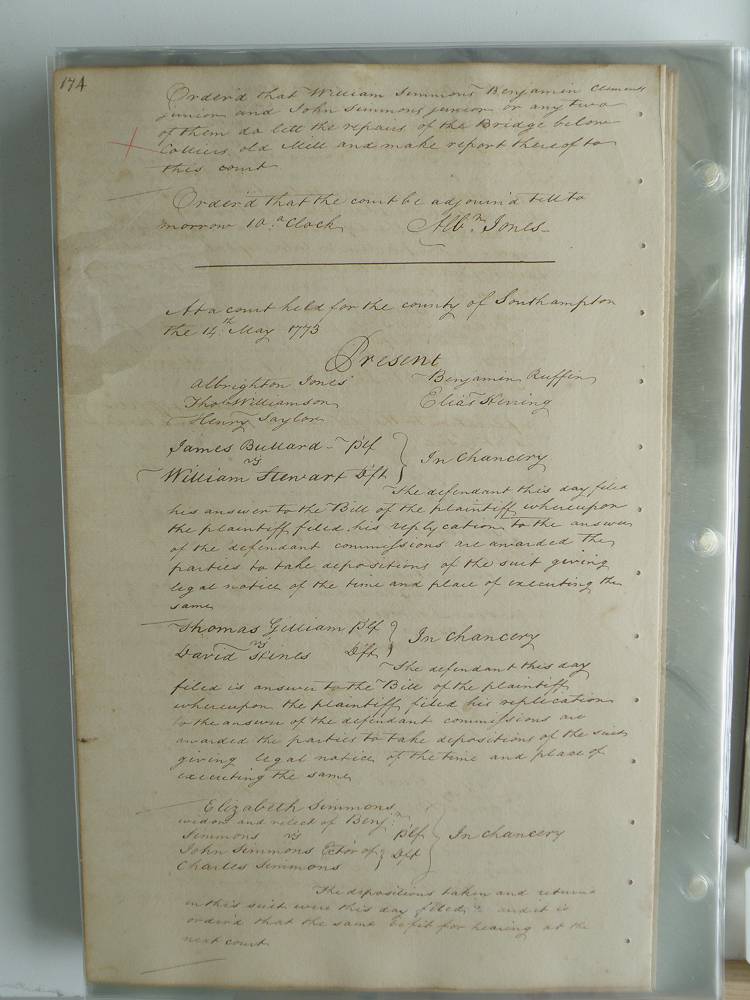 174
Order'd that William Simmons Benjamin Clements
junior and John Simmons junior or any two
of them do lett the repairs of the Bridge below
Colliers old Mill and make report thereof to
this court
Order'd that the court be adjourn'd till to
morrow 10 a Clock Alb.n Jones
At a court held for the county of Southampton
the 14th May 1773
Present
Albrighton Jones Benjamin Ruffin
Thos Williamson Elias Herring
Henry Taylor
James Bullard Plf
vs In Chancery
William Stewart Dft
The defendant this day filed
his answer to the Bill of the plaintiff whereupon
the plaintiff filed his replycation to the answer
of the defendant commissions are awarded the
parties to take depositions of the suit giving
legal notice of the time and place of executing the
same
Thomas Gilliam Plf
vs In Chancery
David Hines Dft
The defendant this day
filed is answer to the Bill of the plaintiff
whereupon the plaintiff filed his replication
to the answer of the defendant commissions are
awarded the parties to take depositions of the suit
giving legal notice of the time and place of
executing the same
Elizabeth Simmons
widow and relect of Benj.n
Simmons vs Plf In Chancery
John Simmons of Dft
Charles Simmons
The depositions taken and returnd
in this suit were this day filed and it is
order'd that the same be fit for hearing at the
next court